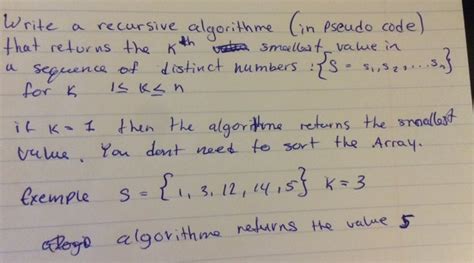 Write a recursive algorithme (in Pseudo code)
that returns the Kth smallest value in
a sequence of distinct numbers : {S = s1, s2, ... sn}
for K 1 ≤ K ≤ n
if K = 1 then the algorithme returns the smallest
value. You dont need to sort the Array.
Exemple S = {1, 3, 12, 14, 5} K = 3
algorithme returns the value 5